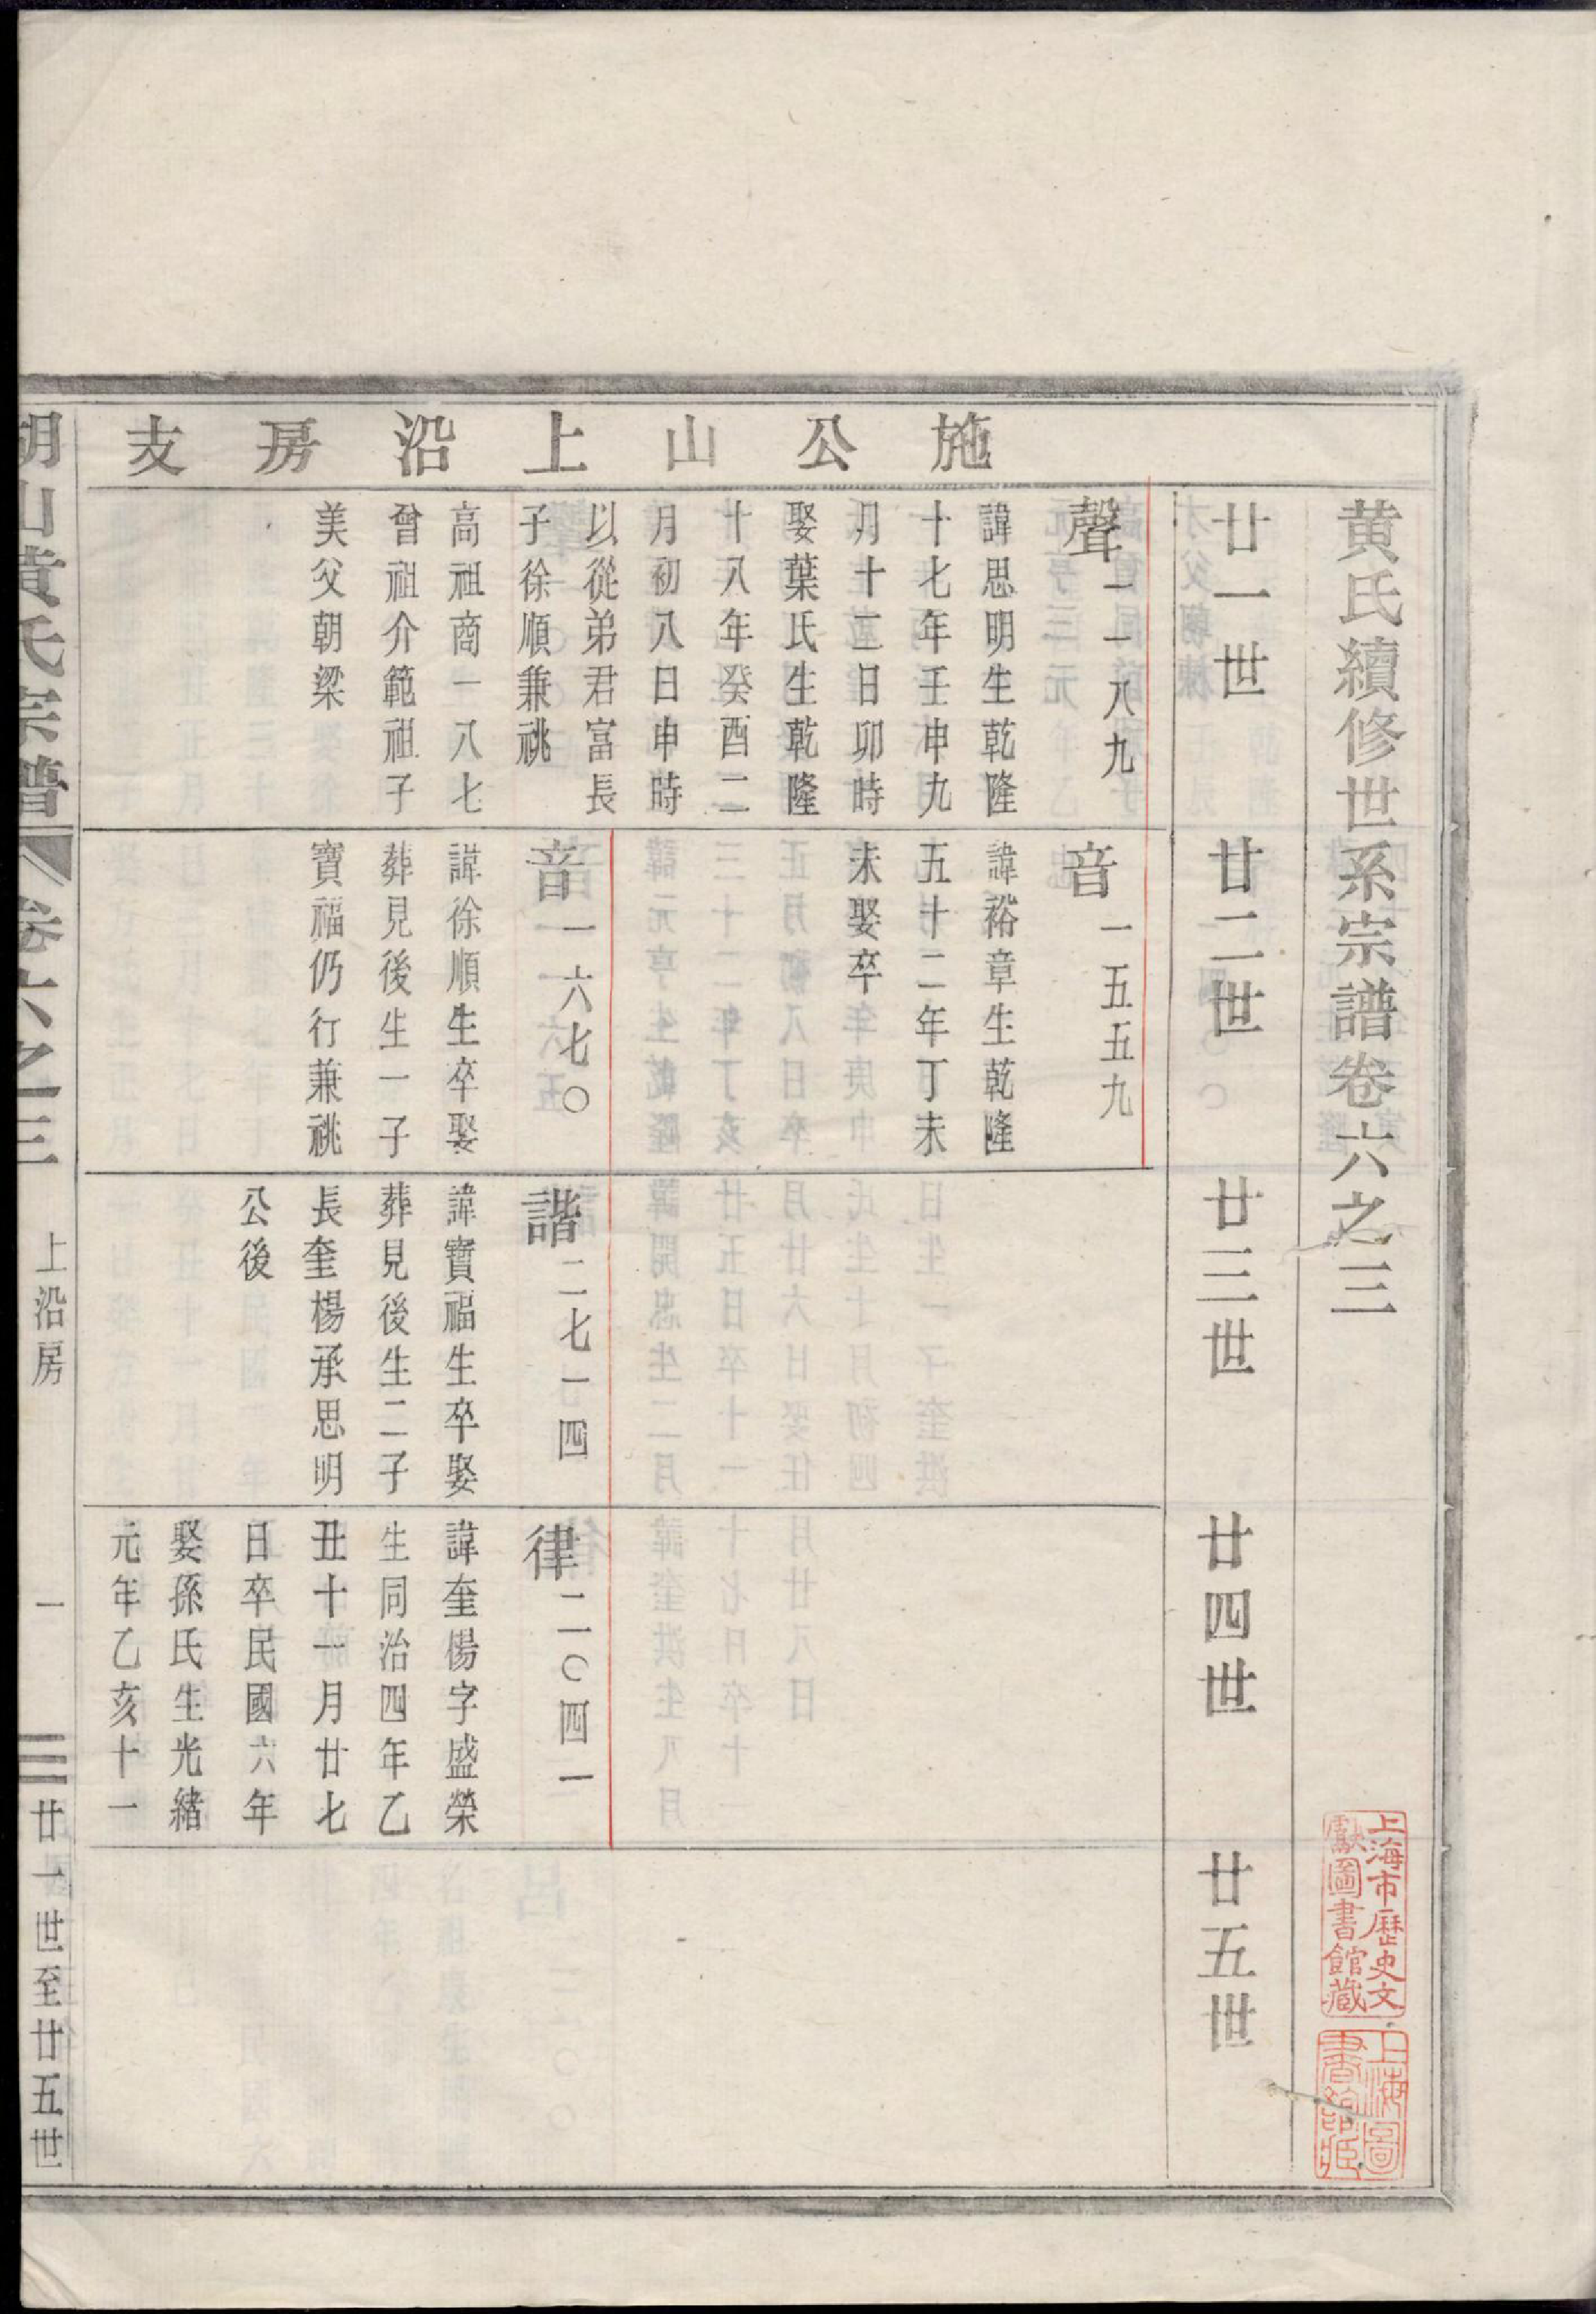 黄氏續修世系宗譜卷六之三
上海市歷史文
獻圖書館藏
上海圖
書館藏
廿一世
廿二世
廿三世
廿四世
廿五世
施公山上沿房支
聲一一八九
諱思明生乾隆
十七年壬申九
月十二日卯時
娶葉氏生乾隆
十八年癸酉二
月初八日申時
以從弟君富長
子徐順兼祧
高祖商一八七
曾祖介範祖子
美父朝梁
音一五五九
諱裕章生乾隆
五十二年丁未
未娶卒
音一六七〇
諱徐順生卒娶
葬見後生一子
寶福仍行兼祧
諧二七一四
諱寶福生卒娶
葬見後生二子
長奎楊承思明
公後
律二一〇四一
諱奎楊字盛榮
生同治四年乙
丑十一月廿七
日卒民國六年
娶孫氏生光緒
元年乙亥十一
胡山黄氏宗譜
卷六之三
上沿房
一
廿一世至廿五世